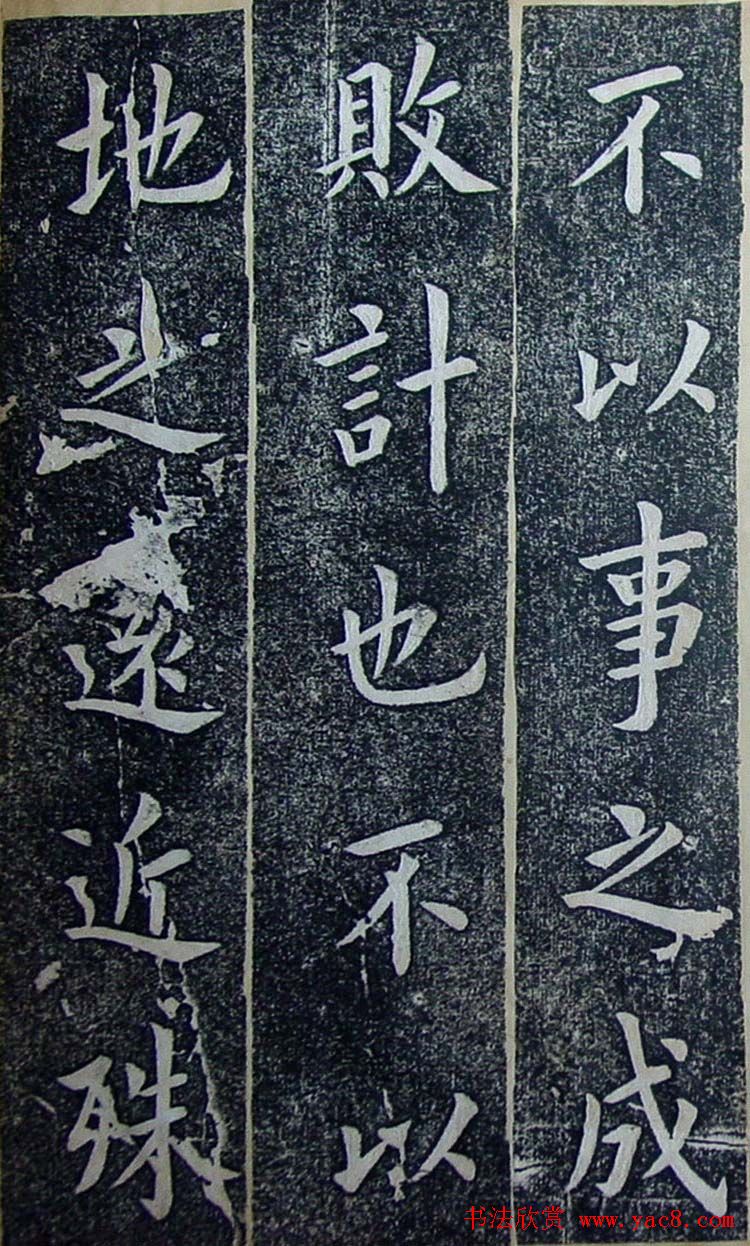 不以事之成
敗計也不以
地之遠近殊
书法欣赏 www.yac8.com